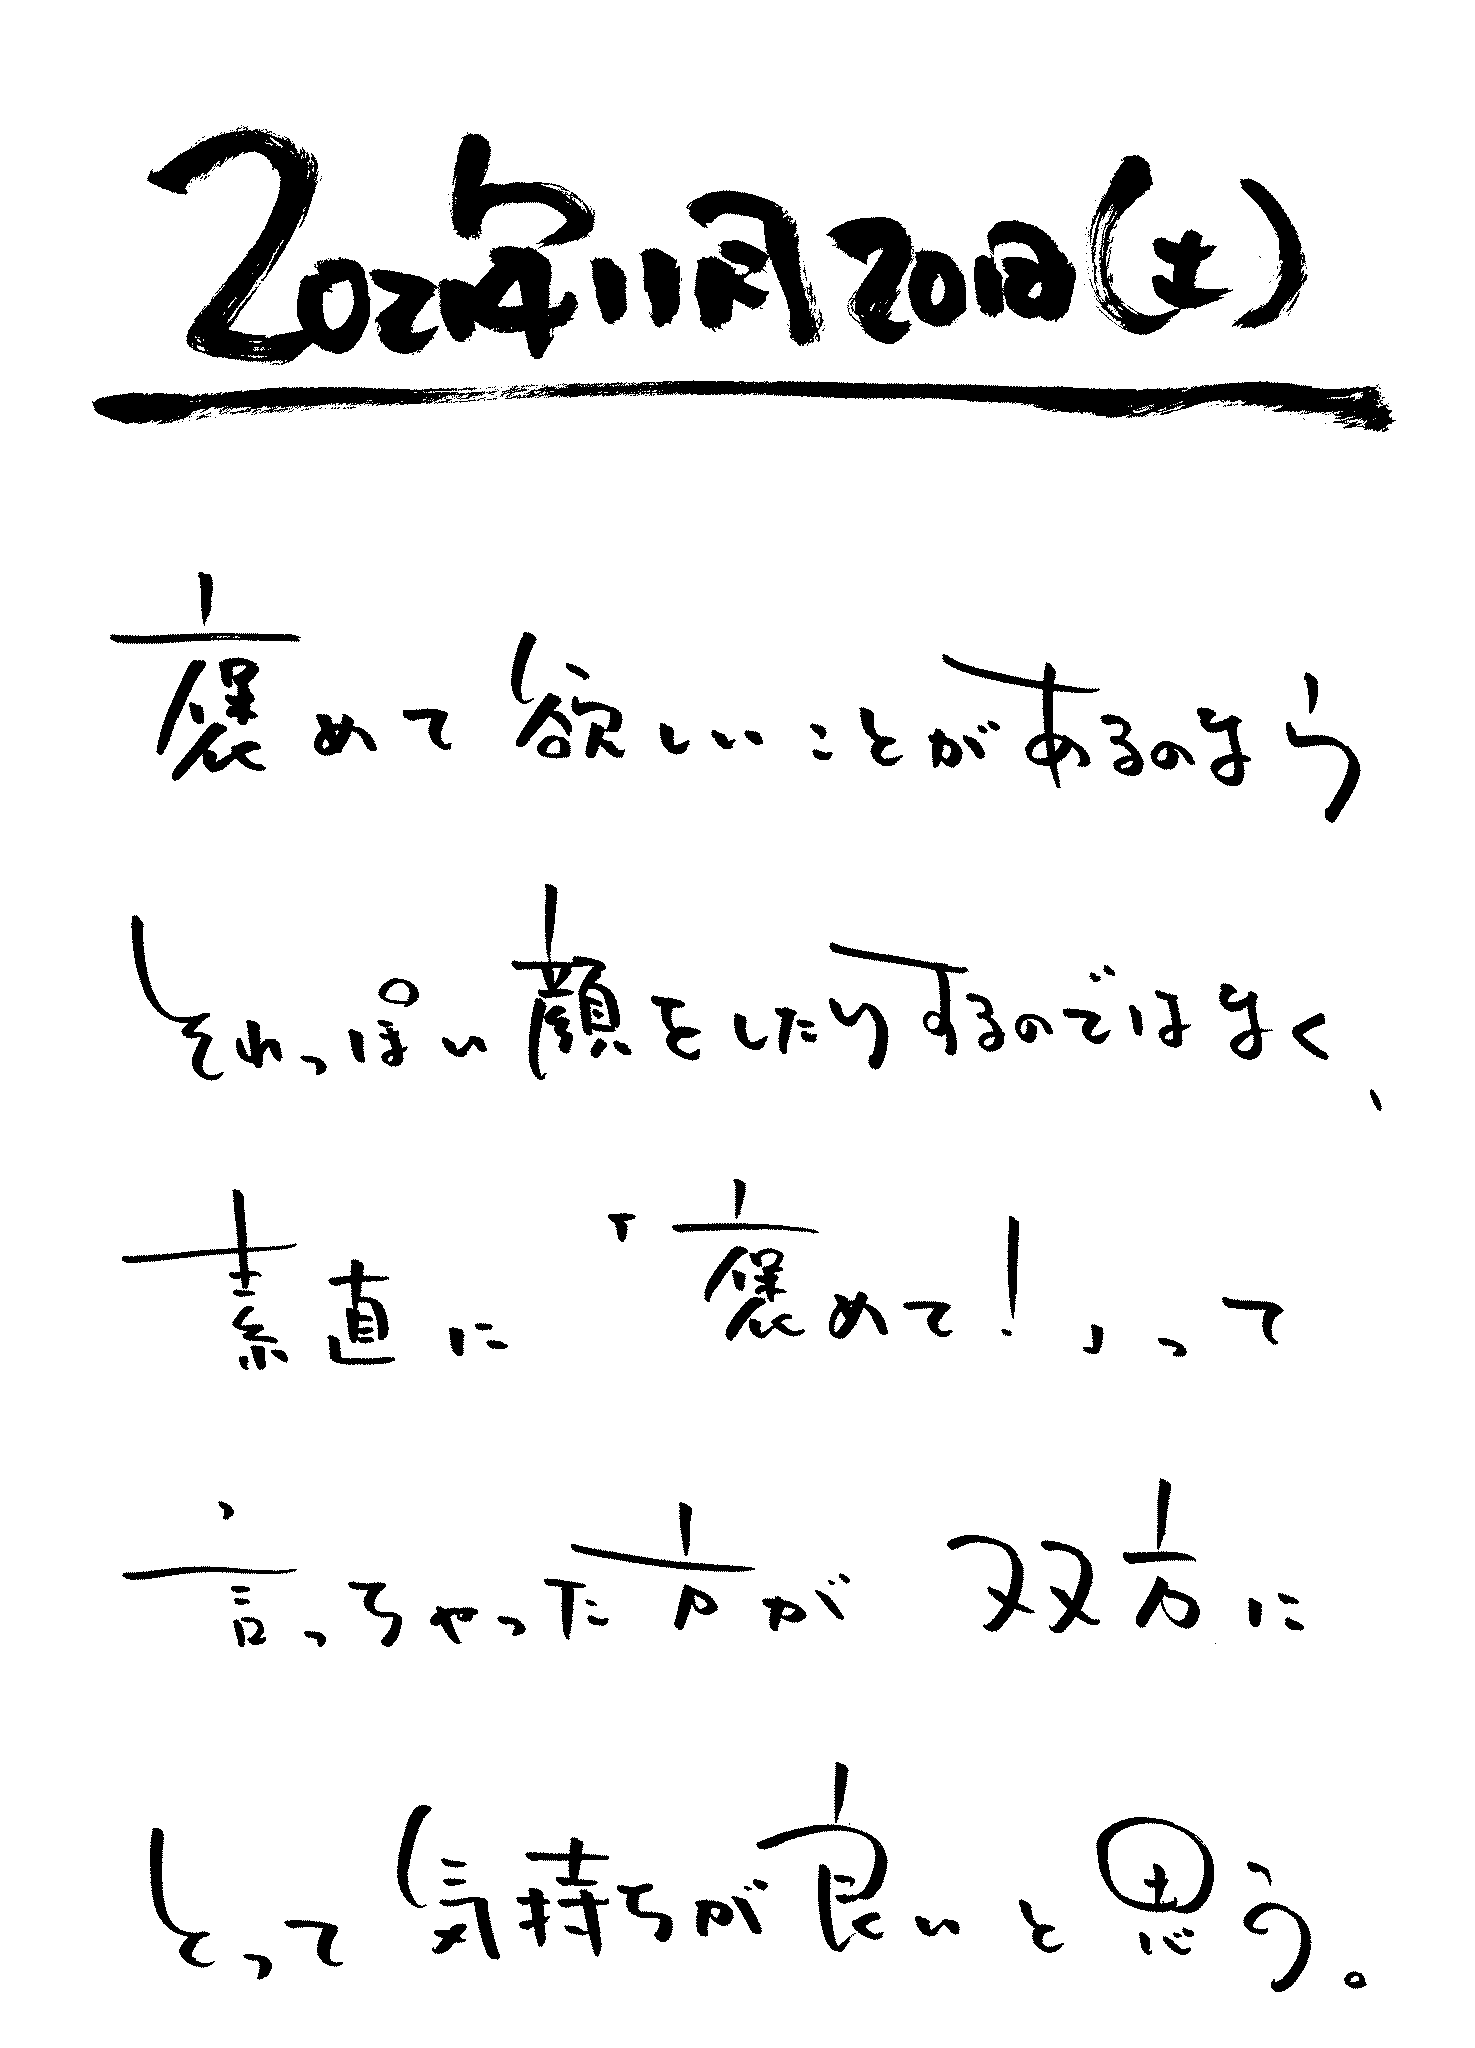 2021年11月20日(土)
褒めて欲しいことがあるのなら
それっぽい顔をしたりするのではなく、
素直に「褒めて!」って
言っちゃった方が 双方に
とって気持ちが良いと思う。